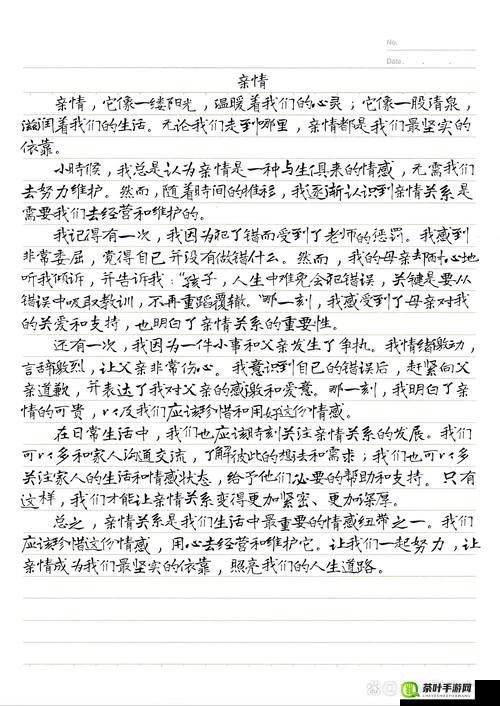 No.
Date. . .
亲情
亲情，它像一缕阳光，温暖着我们的心灵；它像一股清泉，
滋润着我们的生活。无论我们走到哪里，亲情都是我们最坚实的
依靠。
小时候，我总是认为亲情是一种与生俱来的情感，无需我们
去努力维护。然而，随着时间的推移，我逐渐认识到亲情关系是
需要我们去经营和维护的。
我记得有一次，我因为犯了错而受到了老师的惩罚。我感到
非常委屈，觉得自己并没有做错什么。然而，我的母亲却耐心地
听我倾诉，并告诉我：“孩子，人生中难免会犯错误，关键是要从
错误中吸取教训，不再重蹈覆辙。”那一刻，我感受到了母亲对我
的关爱和支持，也明白了亲情关系的重要性。
还有一次，我因为一件小事和父亲发生了争执。我情绪激动，
言辞激烈，让父亲非常伤心。我意识到自己的错误后，赶紧向父
亲道歉，并表达了我对父亲的感激和爱意。那一刻，我明白了亲
情的可贵，以及我们应该珍惜和用好这份情感。
在日常生活中，我们也应该时刻关注亲情关系的发展。我们
可以多和家人沟通交流，了解彼此的想法和需求；我们也可以多
关注家人的生活和情感状态，给予他们必要的帮助和支持。只有
这样，我们才能让亲情关系变得更加紧密、更加深厚。
总之，亲情关系是我们生活中最重要的情感纽带之一。我们
应该珍惜这份情感，用心去经营和维护它。让我们一起努力，让
亲情成为我们最坚实的依靠，照亮我们的人生道路。
茶叶手游网